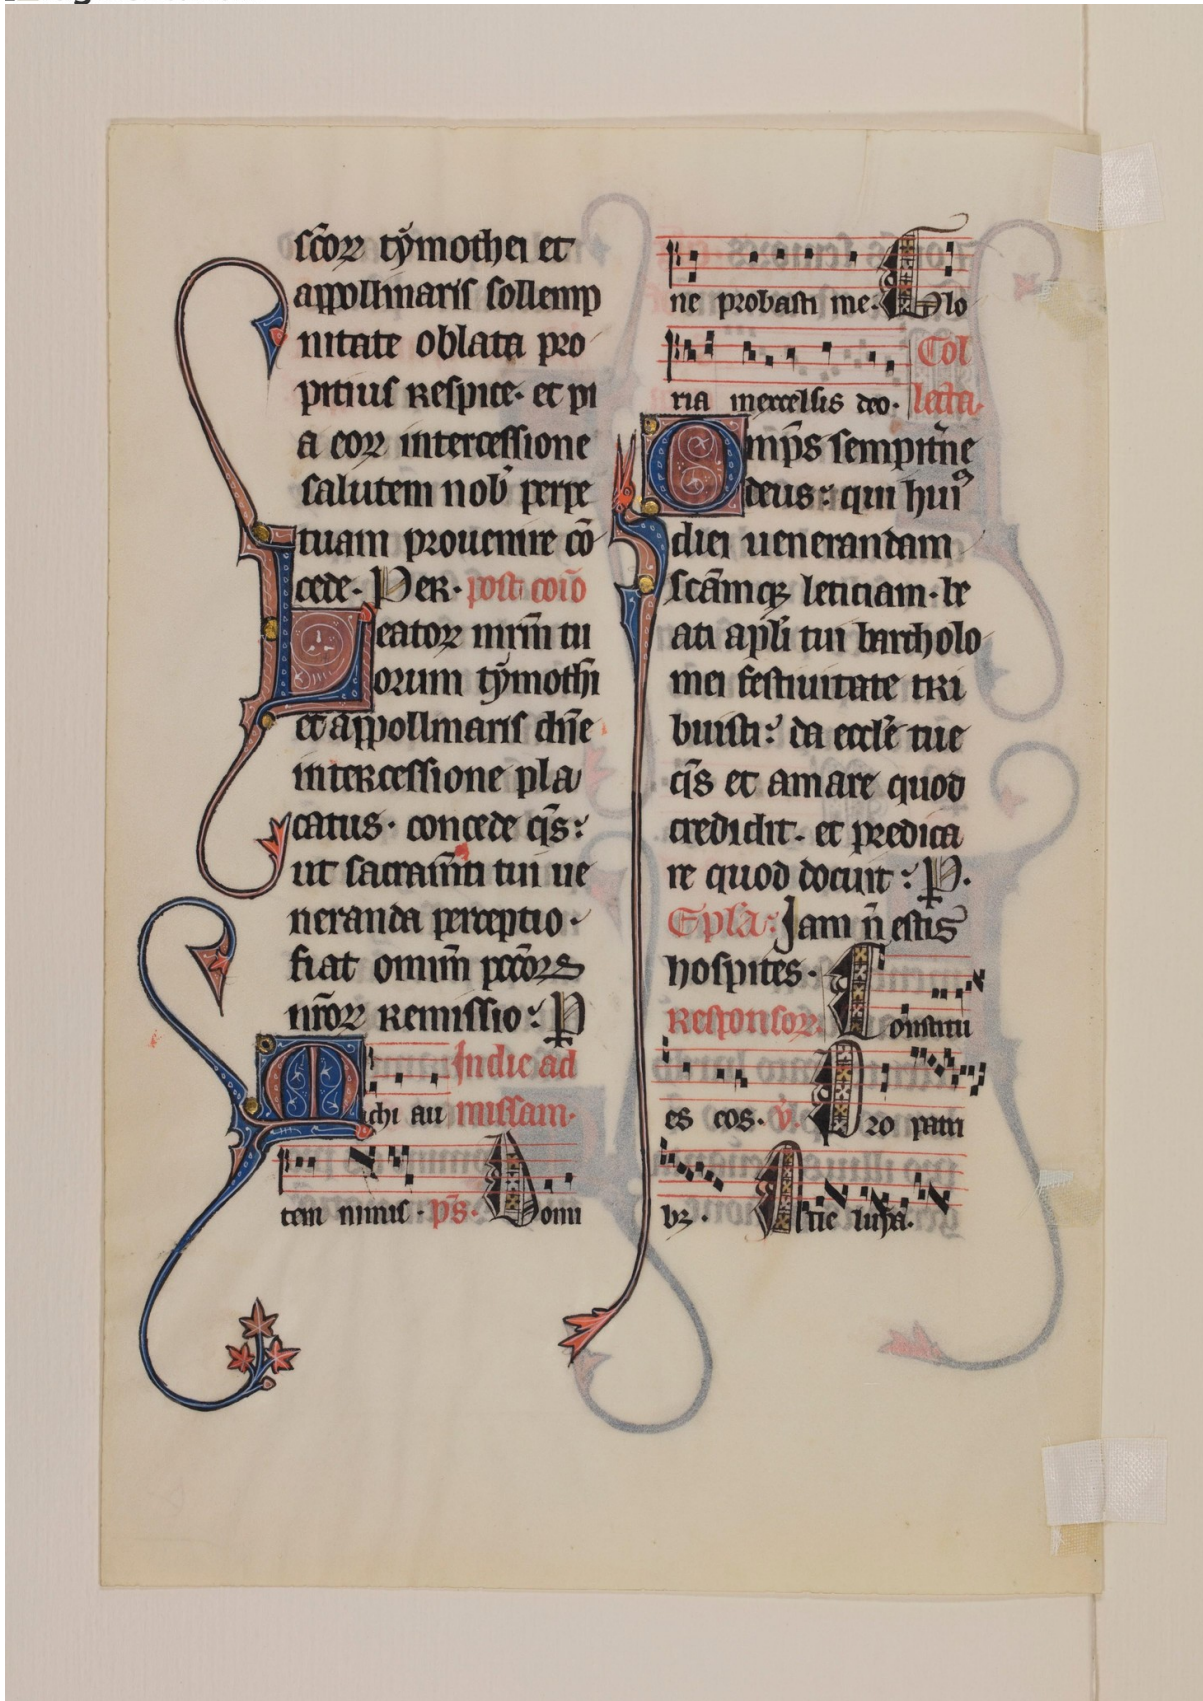 sc̄oꝝ tẏmothei et
appollinaris sollemp
nitate oblata pro
pitius respice. et pi
a eoꝝ intercessione
salutem nob̄ perpe
tuam prouenire cō
cede. Per. post coīo
Beatoꝝ mr̄m tu
orum tẏmothī
et appollinaris dn̄e
intercessione pla
catus. concede q̄s:
ut sacram̄ti tui ue
neranda perceptio.
fiat omīm pccōꝝ
nr̄oꝝ remissio: P
In die ad
Michi au missam.
tem nimis. ps̄. Domi
ne probasti me. Glo
ria inexcelsis deo. Col
lecta.
Omp̄s sempit̄ne
deus: qui huiꝰ
diei uenerandam
sc̄amqꝫ leticiam. be
ati apl̄i tui bartholo
mei festiuitate tri
buisti: da eccl̄e tue
q̄s et amare quod
credidit. et predica
re quod docuit: P.
Epl̄a: Iam n̄ estis
hospites.
Responsoꝝ. Constitu
es eos. v̇. Pro patri
bꝫ. All̄e luya.